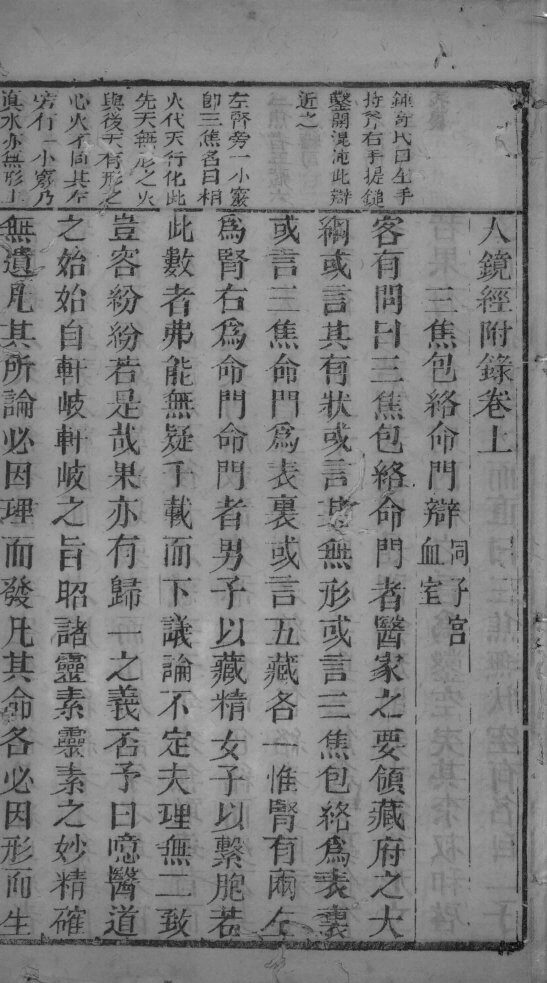 人鏡經附錄卷上
三焦包絡命門辯 同子宮血室
客有問曰三焦包絡命門者醫家之要領藏府之大
綱或言其有狀或言其無形或言三焦包絡爲表裏
或言三焦命門爲表裏或言五藏各一惟腎有兩左
爲腎右爲命門命門者男子以藏精女子以繫胞若
此數者弗能無疑千載而下議論不定夫理無二致
豈容紛紛若是哉果亦有歸一之義否予曰噫醫道
之始始自軒岐軒岐之旨昭諸靈素靈素之妙精確
無遺凡其所論必因理而發凡其命各必因形而生
氏曰左手
持斧右手提鎚
鑿開混沌此辯
近之
左腎旁一小竅
卽三焦名曰相
火代天行化此
先天無形之火
與後天有形之
心火不同其左
旁有一小竅乃
眞水亦無形上